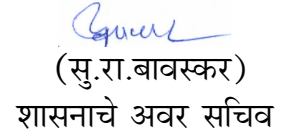 (सु.रा.बावस्कर)
शासनाचे अवर सचिव